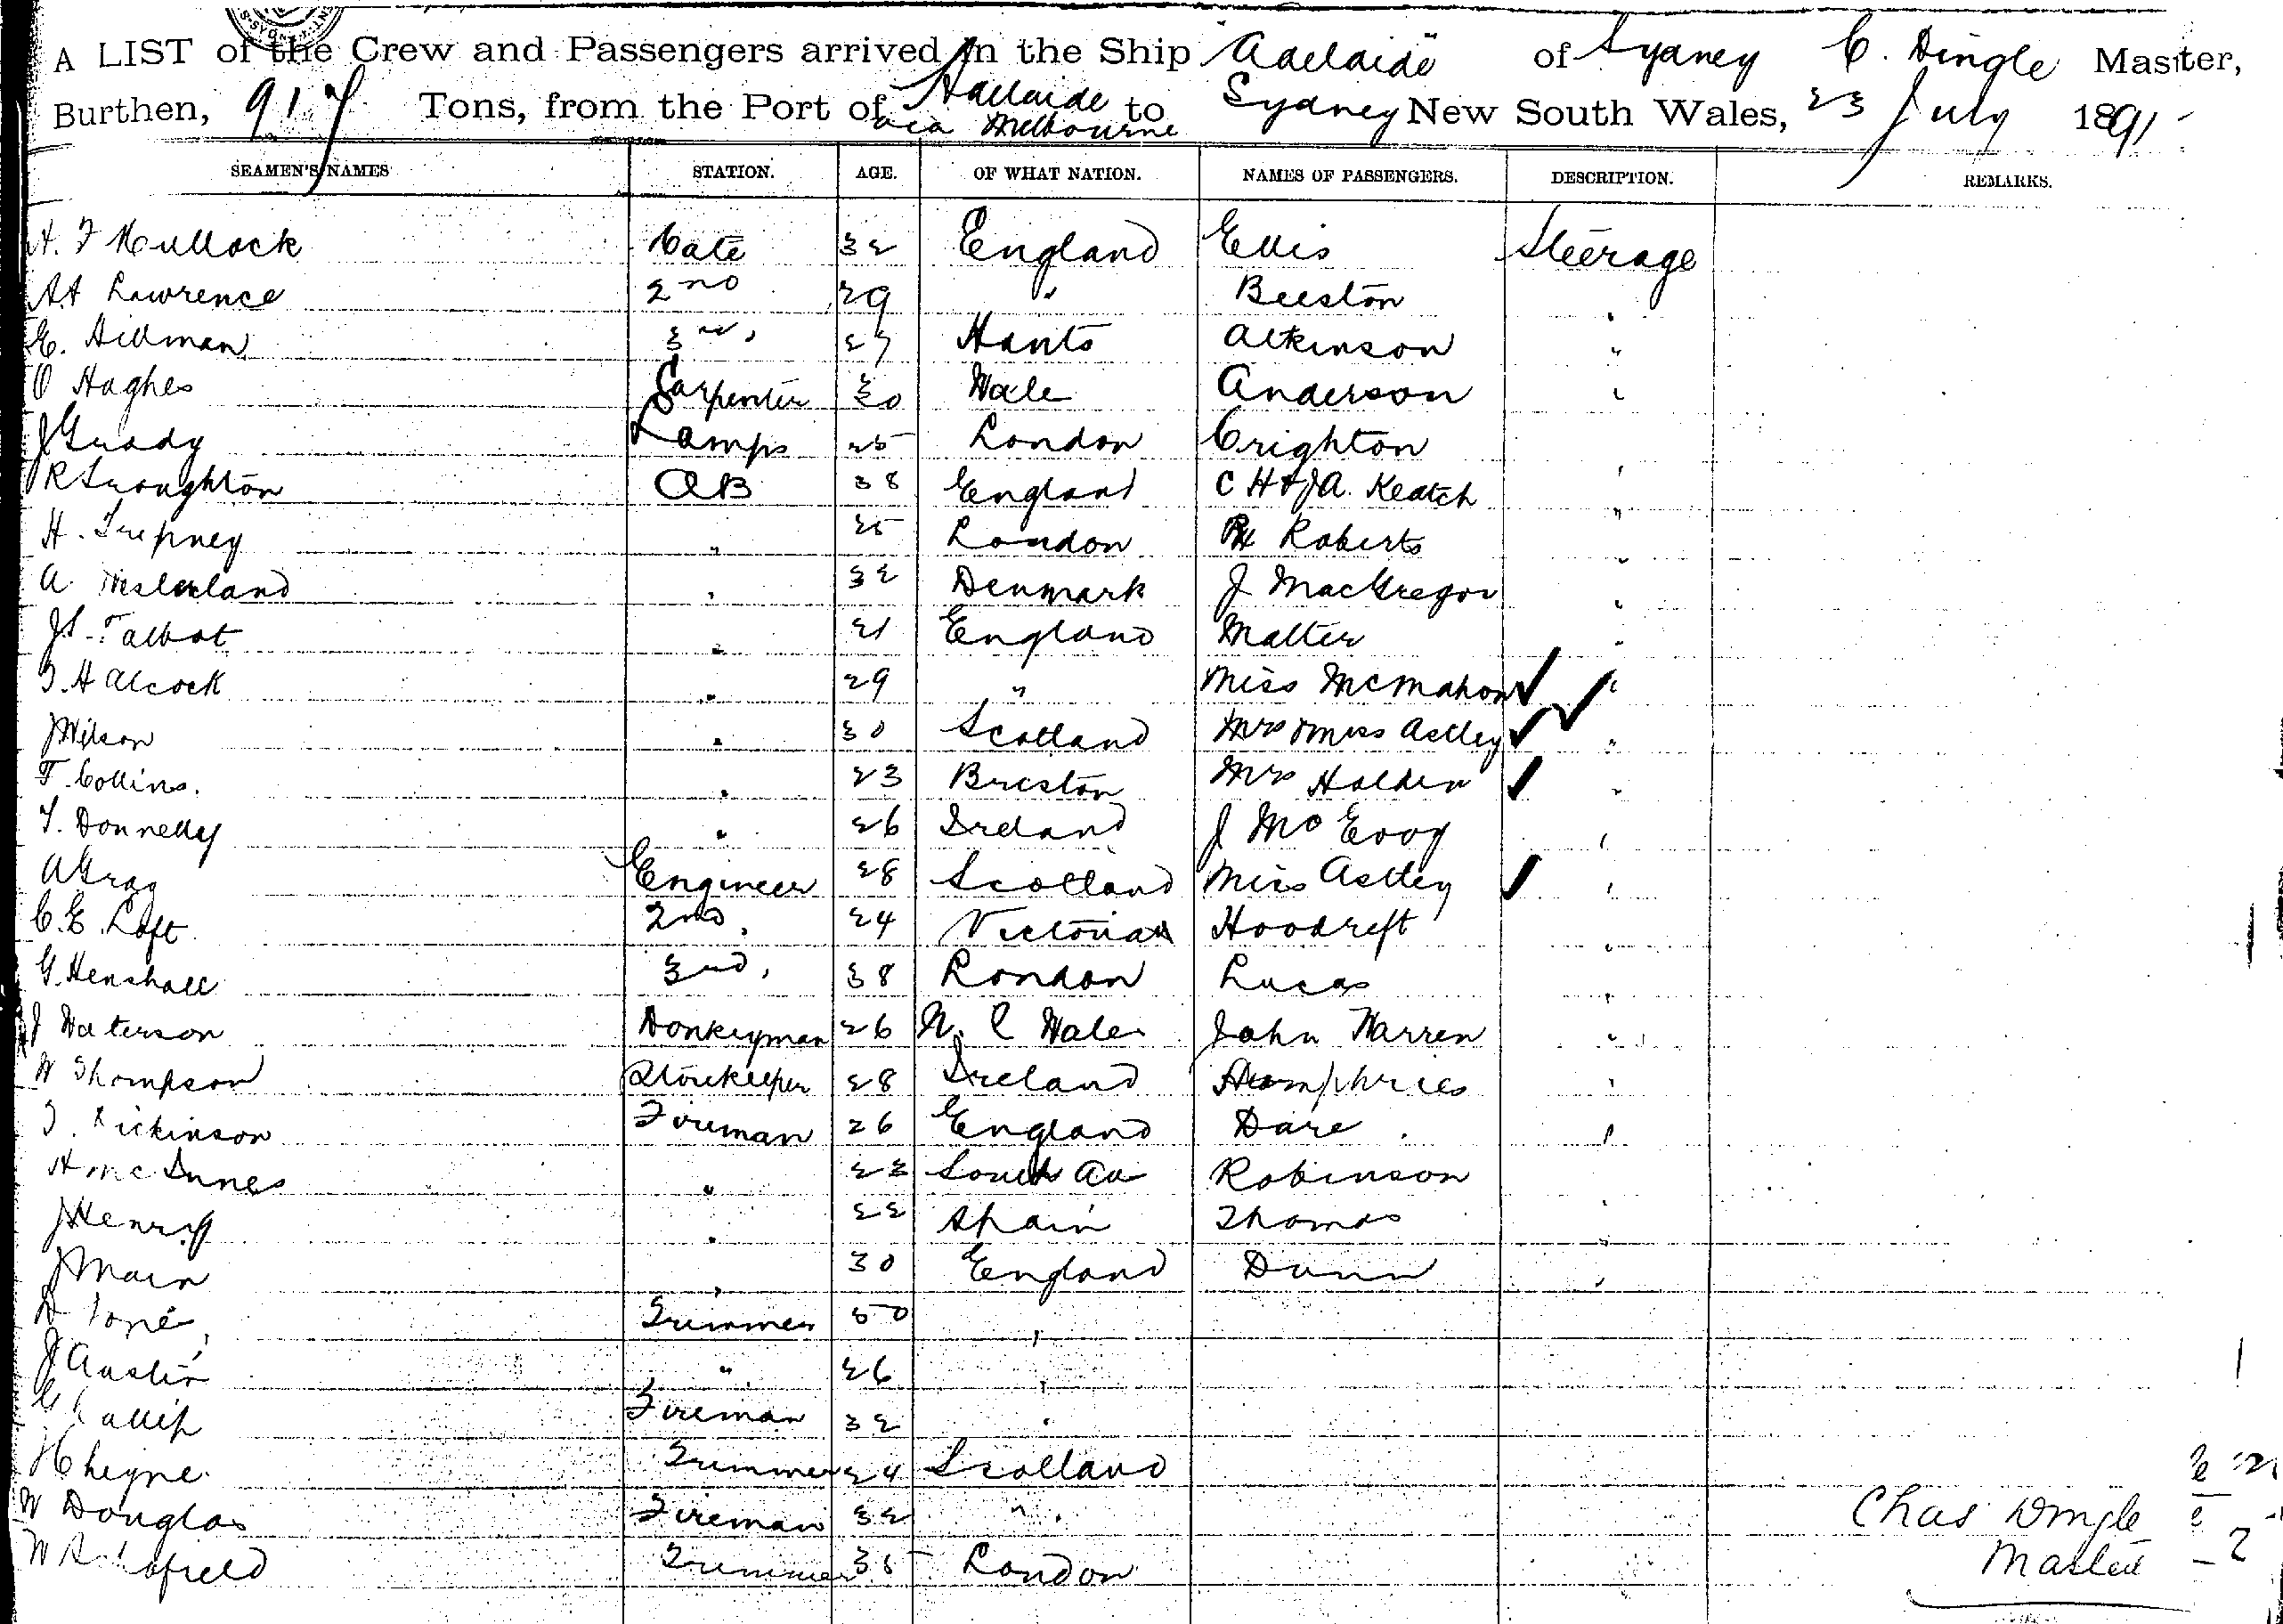 A LIST of the Crew and Passengers arrived in the Ship "Adelaide" of Sydney C. Dingle Master,
Burthen, 917 Tons, from the Port of Adelaide via Melbourne to Sydney New South Wales, 23 July 1891
SEAMEN'S NAMES STATION. AGE. OF WHAT NATION. NAMES OF PASSENGERS. DESCRIPTION. REMARKS.
H. F Mullock Mate 32 England Ellis Steerage
A.A Lawrence 2nd 29 " Beeston "
E. Hillman 3rd, 27 Hants Atkinson "
O Hughes Carpenter 30 Wale Anderson "
J Grady Lamps 25 London Crighton
R Troughton AB 38 England C H & J A. Keatch "
H. Trepney " 25 London Roberts "
A " 32 Denmark J MacGregor "
J S. Talbot " 21 England Malter "
T. H Alcock " 29 " Miss McMahon "
J Wilson " 30 Scotland Mrs & Miss Astley "
F. Collins. " 23 Breston Mrs Holden "
T. Donnelly " 26 Ireland J McEvoy "
A Gray Engineer 28 Scotland Miss Astley "
C. E. Loft 2nd. 24 Victoria Hoodreft "
G. Henshall 3rd, 38 London Lucas "
J Waterson Donkeyman 26 N. S Wales John Warren "
W Thompson Storekeeper 28 Ireland Humphries "
T. Dickinson Fireman 26 England Dare "
H McInnes " 22 South Au Robinson
J Henry " 22 Spain Thomas "
J Main " 30 England Dunn "
D Trimmer 50 "
J Austin " 26 "
G Fireman 32 "
J Cheyne Trimmer 24 Scotland
W Douglas Fireman 32 "
W Trimmer 35 London
Chas Dingle
Master